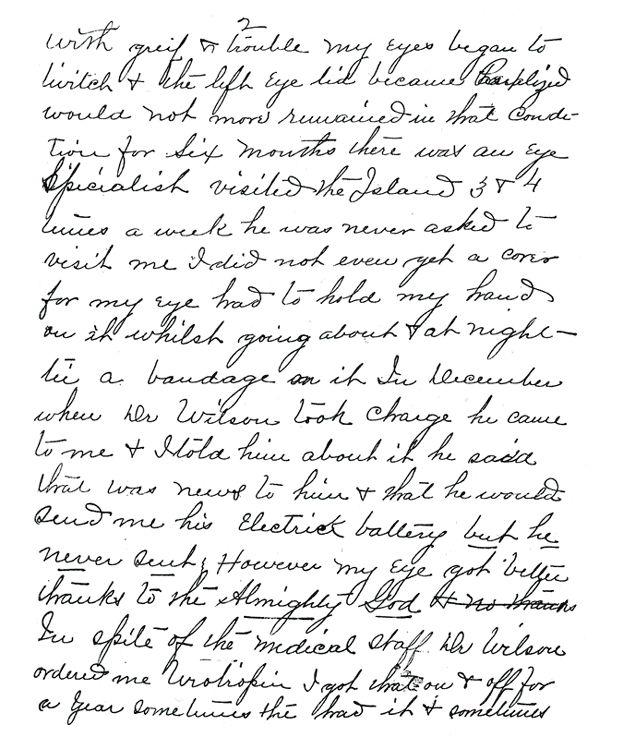 2
with greif & trouble my eyes began to
twitch & the left eye lid became Parplized
would not more remained in that condi-
tion for six months there was an eye
Specialish visited the Island 3 & 4
times a week he was never asked to
visit me I did not even get a cover
for my eye had to hold my hand
on it whilst going about & at night -
tie a bandage on it In December
when Dr Wilson took charge he came
to me & I told him about it he said
that was news to him & that he would
send me his Electrick battery but he
never sent; However my Eye got better
thanks to the Almighty God & no thanks
In spite of the medical staff. Dr Wilson
ordered me Urotropin I got that on & off for
a year sometimes the had it & sometimes